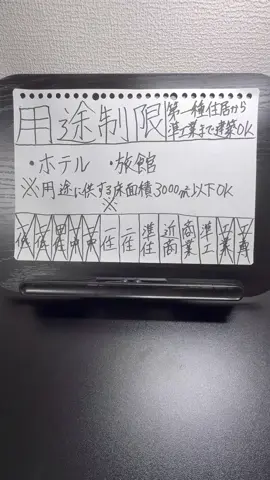 用途制限
第一種住居から
準工業まで建築OK
・ホテル ・旅館
※用途に供する床面積3000㎡以下OK
※
一低 二低 田住 一中 二中 一住 二住 準住 近商 商業 準工 工業 工専